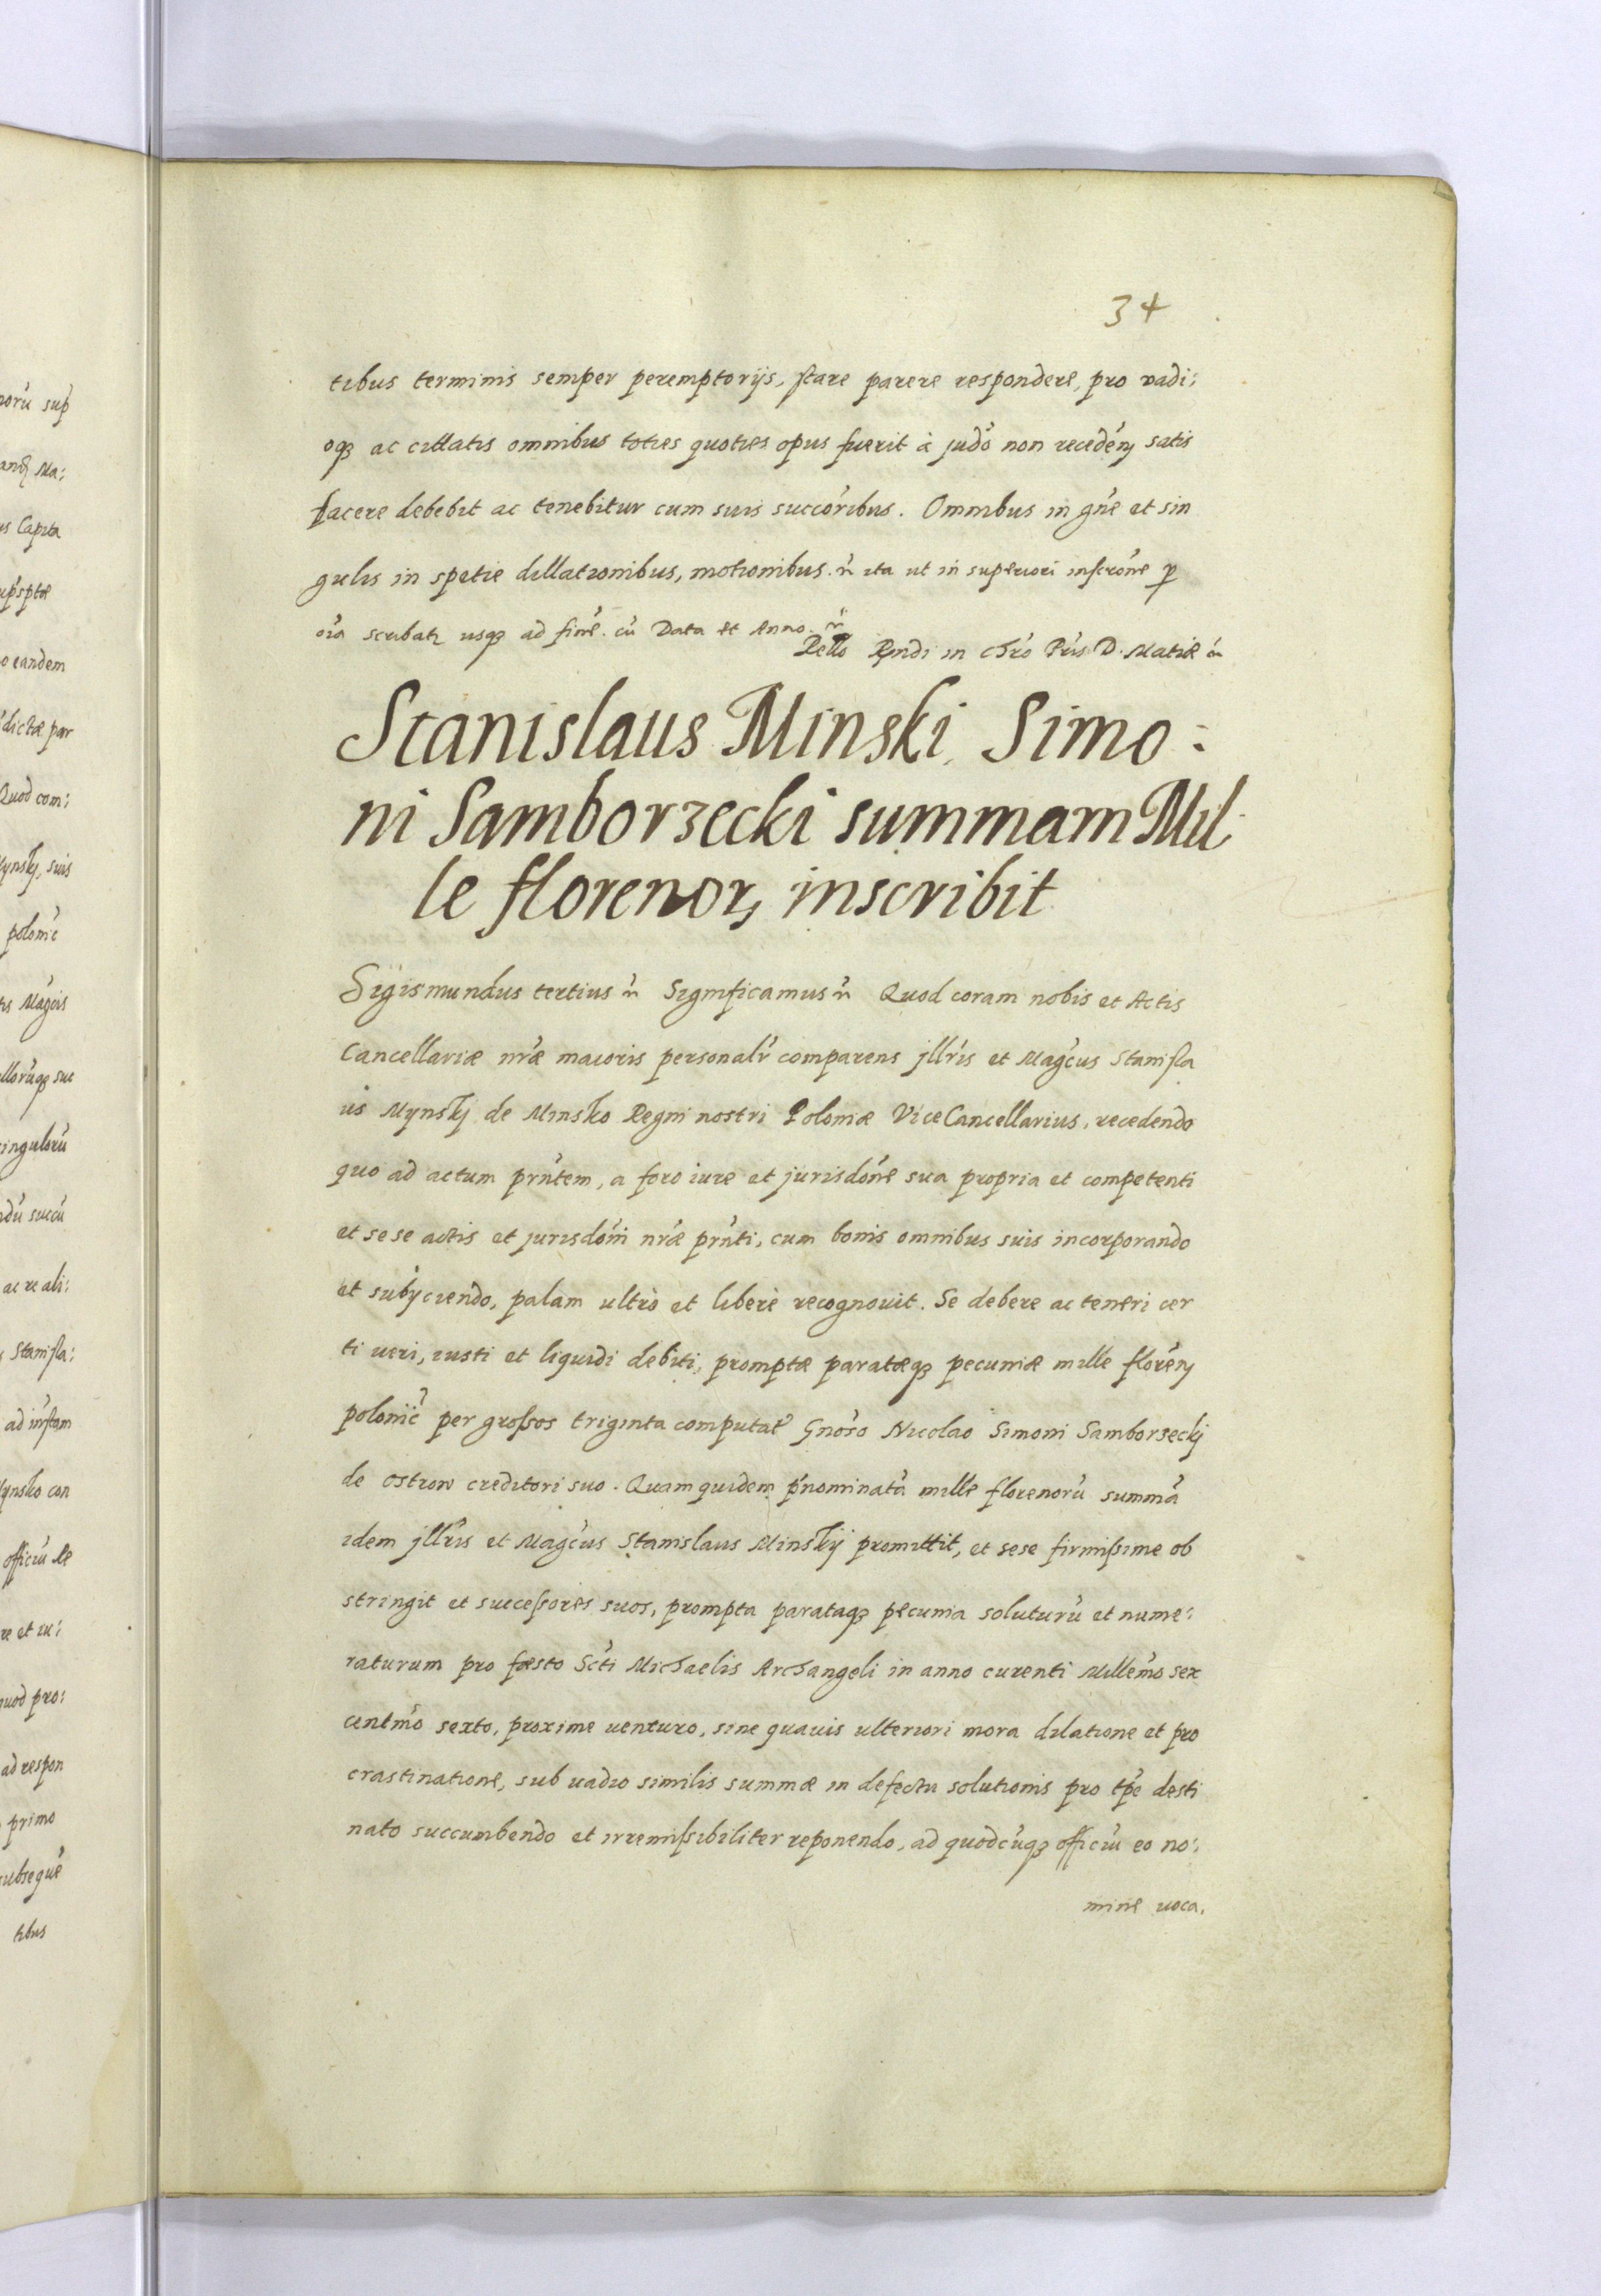 34
tibus terminis semper peremptorijs, stare parere respondere, pro vadi:
oq3 ac cittatis omnibus toties quoties opus fuerit à judo non receden satis
facere debebit ac tenebitur cum suis succoribus. Omnibus in gne et sin
gulis in spetie dillationibus, motionibus. ita ut in superiori inscrone p
oia scribat usq3 ad fine. cu Data et Anno.
Rello Rndi in chro Pris D. Matiæ
Stanislaus Minski, Simo:
ni Samborzecki summam Mil
le florenor, inscribit
Sigismundus tertius Significamus Quod coram nobis et Actis
Cancellariæ nræ maioris personalr comparens jllris et Magcus Stanisla
us Mynskj de Minsko Regni nostri Poloniæ ViceCancellarius, recedendo
quo ad actum prntem, a foro iure et jurisdone sua propria et competenti
et sese actis et jurisdoni nræ prnti, cum bonis omnibus suis incorporando
et subyciendo, palam ultrò et liberè recognovit. Se debere ac teneri cer
ti veri, iusti et liquidi debiti, promptæ paratæq3 pecuniæ mille floren
polonic per grossos triginta computat Gnoso Nicolao Simoni Samborseckj
de Ostrow creditori suo. Quam quidem pnominata mille florenoru summa
idem jllris et Magcus Stanislaus Minskij promittit, et sese firmissime ob
stringit et successores suos, prompta parataq3 pecunia soluturu et nume:
raturum pro fæsto Scti Michaelis Archangeli in anno curenti Millemo sex
centmo sexto, proxime venturo, sine quavis ulteriori mora dilatione et pro
crastinatione, sub vadio similis summæ in defectu solutionis pro tpe desti
nato succumbendo et irremissibiliter reponendo, ad quodcuq3 officiu eo no:
mine voca.